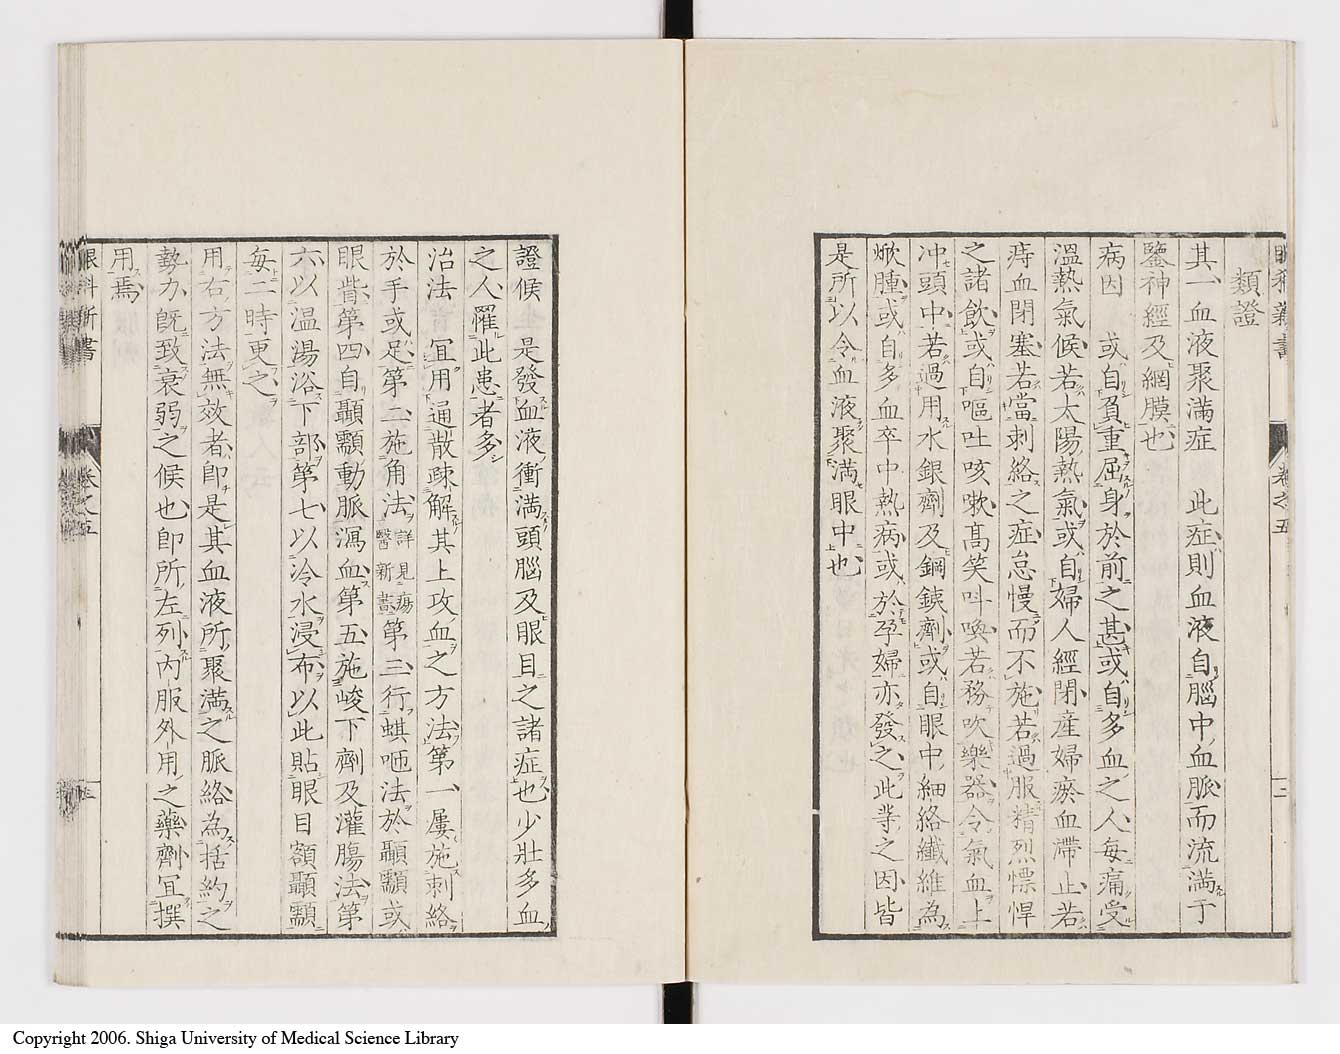 眼科新書 卷之五 二
類證
其一血液聚滿症 此症則血液自腦中血脈而流滿于
鑒神經及網膜也
病因 或自負重屈身於前之甚或自多血之人每痛受
溫熱氣候若太陽熱氣或自婦人經閉産婦瘀血滯止若
痔血閉塞若當刺絡之症怠慢而不施若過服精烈慓悍
之諸飲或自嘔吐咳嗽高笑叫喚若務吹樂器令氣血上
冲頭中若過用水銀劑及鋼鐵劑或自眼中細絡纖維為
焮腫或自多血卒中熱病或於孕婦亦發之此等之因皆
是所以令血液聚満眼中也
證候 是發血液衝満頭腦及眼目之諸症也少壯多血
之人罹此患者多
治法 宜用通散疎解其上攻血之方法第一屢施刺絡
於手或足第二施角法詳見瘍醫新書第三行蜞咂法於顳顬或
眼眥第四自顳顬動脈瀉血第五施峻下劑及灌膓法第
六以温湯浴下部第七以冷水浸布以此貼眼目額顳顬
每二時更之
用右方法無效者卽是其血液所聚満之脈絡為括約之
勢力旣致衰弱之候也卽所左列內服外用之藥劑宜撰
用焉
眼科新書 卷之五
Copyright 2006. Shiga University of Medical Science Library